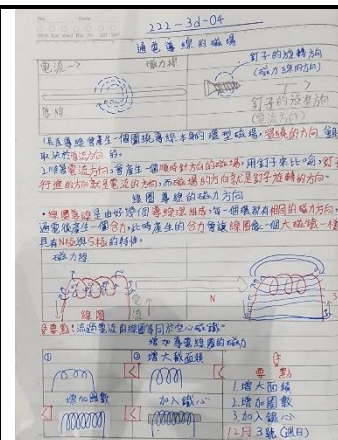 No.
Date
Mon Tue Wed Thu Fri Sat Sun
222-3d-04
通電導線的磁場
電流->
磁力線
導線
釘子的旋轉方向
(磁力線的方向)
釘子的前進方向
(電流方向)
1.長直導線會產生一個圍繞導線本身的環型磁場,環繞的方向
取決於電流方向 的。
2.順著電流方向,會產生一個順時針方向的磁場,用釘子來比喻,釘子
行進的方向就是電流的方向,而磁場的方向就是釘子旋轉的方向。
線圈導線的磁力方向
•線圈導線是由好幾個導線環組成,每一個環都有相同的磁力方向,
通電後產生一個合力,此時產生的合力會讓線圈像一個大磁鐵一樣
具有N極與S極的特性。
磁力線
電流
N
S
線圈
要點:流過電流的線圈等同於空心磁鐵。
增加導電線圈的磁力
①
②增大截面積
增加圈數
加入鐵心
要點
1.增大面積
2.增加圈數
3.加入鐵心
12月3號(週日)